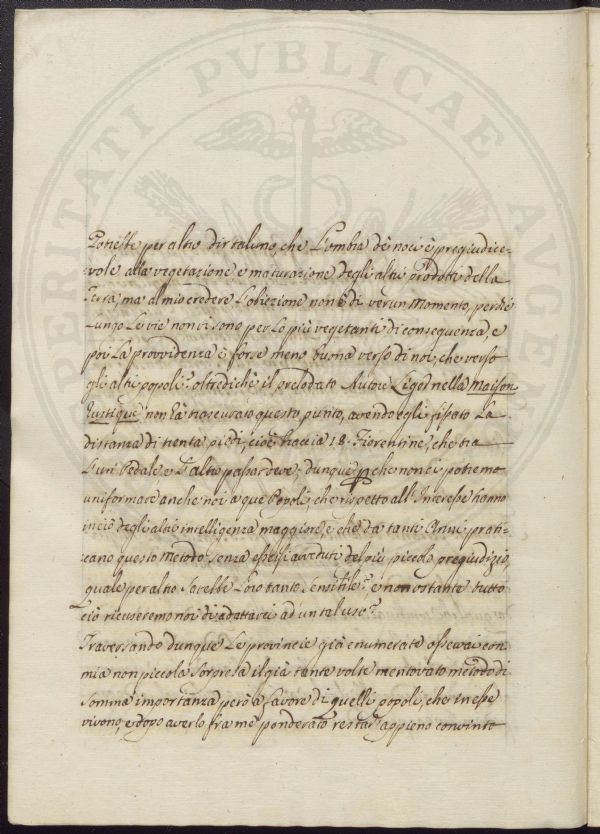 PERITATI PVBLICAE AVGEN
Potrebbe per altro dir taluno, che l'ombra dè noci è pregiudice-
-vole alla vegetazione e maturazione degli altri prodotti della
Terra, ma al mio credere l'obiezione non è di verun Momento, perchè
Lungo Le vie non vi sono per Lo più vegetanti di consequenza, e
poi La provvidenza è forse meno buona verso di noi, che verso
gli altri popoli? oltredichè il prelodato Autore Ligeo nella Maison
Rustique non hà trascurato questo punto, avendo egli fissato La
distanza di trenta piedi, cioè braccia 18. Fiorentine, che tra
L'un Pedale, e L'altro passar deve: dunque perche non ci potremo
uniformare anche noi a què Popoli, che rispetto all'Interesse hanno
in ciò degli altri intelligenza maggiore, e che da tanti Anni prati-
cano questo metodo senza essersi avveduti del più piccolo pregiudizio,
quale per altro sarebbe Loro tanto sensibile? e nonostante tutto
Ciò ricuseremo noi di adattarci ad un tal uso?
Traversando dunque Le provincie già enumerate osservai con
mia non piccola sorpresa il già tante volte mentovato metodo di
somma importanza però a favore di quelli popoli, che in esse
vivono, e dopo averlo fra me ponderato restai appieno convinto